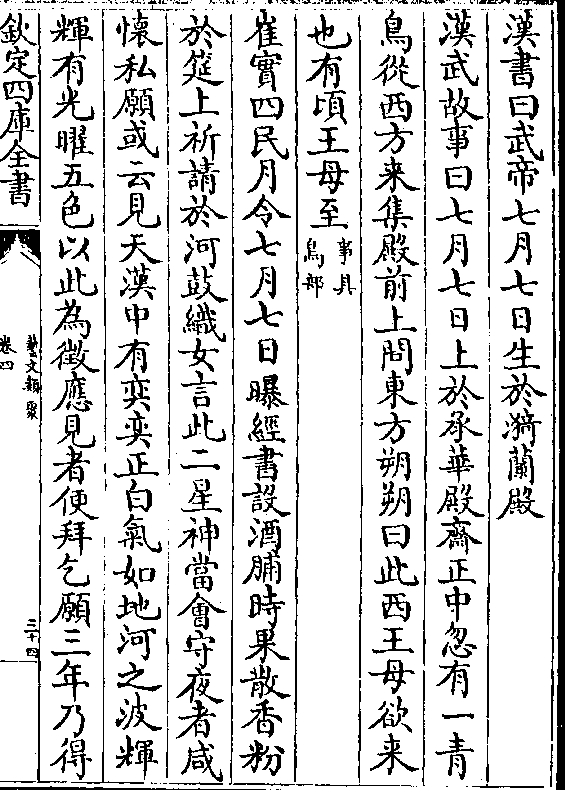 漢書曰武帝七月七日生於漪蘭殿
漢武故事曰七月七日上於承華殿齋正中忽有一青
鳥從西方来集殿前上問東方朔朔曰此西王母欲来
也有頃王母至事具鳥部
崔寔四民月令七月七日曝經書設酒脯時果散香粉
於筵上祈請於河鼓織女言此二星神當會守夜者咸
懷私願或云見天漢中有奕奕正白氣如地河之波輝
輝有光曜五色以此為徵應見者便拜乞願三年乃得
欽定四庫全書
藝文類聚
卷四
三十四